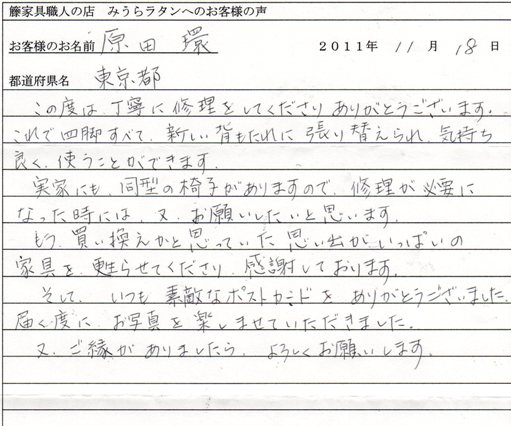 籐家具職人の店　みうらラタンへのお客様の声
お客様のお名前 原田 環　2011年 11月 18日
都道府県名 東京都
この度は丁寧に修理をしてくださりありがとうございます.
これで四脚すべて、新しい背もたれに張り替えられ、気持ち
良く、使うことができます.
実家にも、同型の椅子がありますので、修理が必要に
なった時には、又、お願いしたいと思います.
もう、買い換えかと思っていた思い出がいっぱいの
家具を、甦らせてくださり、感謝しております.
そして、いつも素敵なポストカードをありがとうございました.
届く度に、お写真を楽しませていただきました.
又、ご縁がありましたら、よろしくお願いします.